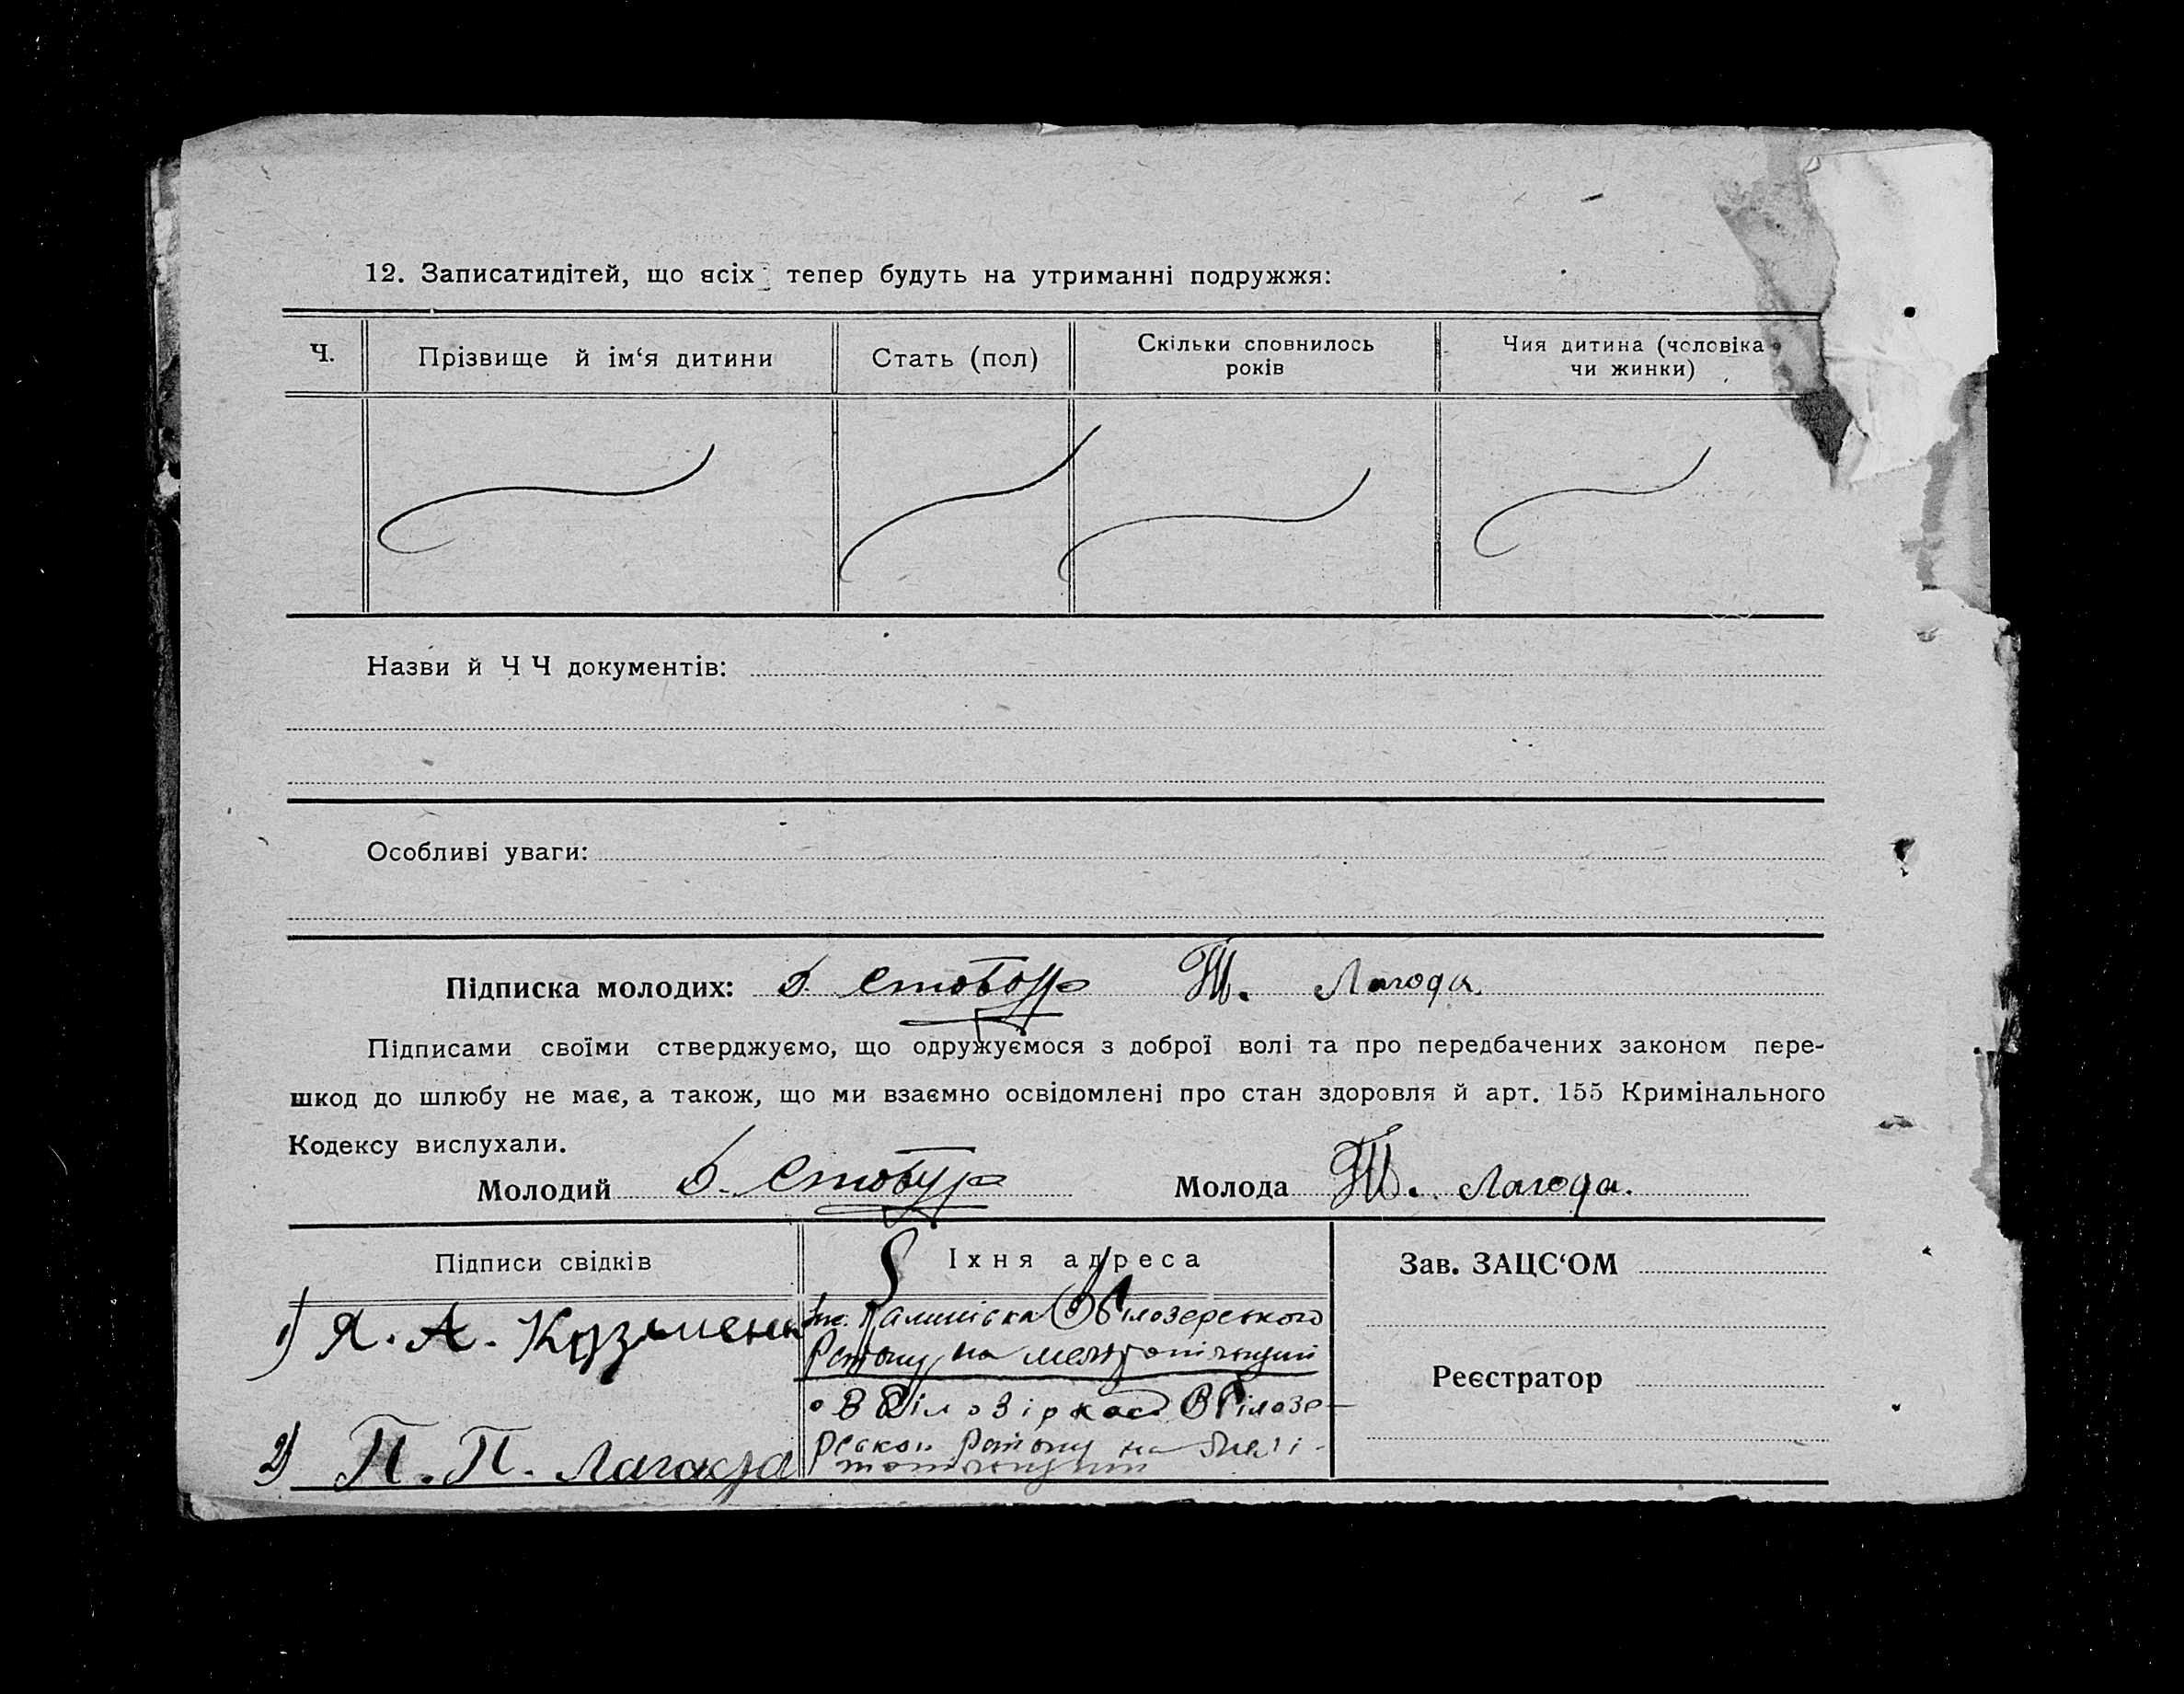 12. Записатидітей, що всіх тепер будуть на утриманні подружжя:
Ч. Прізвище й ім‘я дитини Стать (пол) Скільки сповнилось років Чия дитина (чоловіка чи жинки)
Назви й Ч Ч документів:
Особливі уваги:
Підписка молодих: Т. Лагода.
Підписами своїми стверджуємо, що одружуємося з доброї волі та про передбачених законом пере-
шкод до шлюбу не має, а також, що ми взаємно освідомлені про стан здоровля й арт. 155 Кримінального
Кодексу вислухали.
Молодий Молода Т. Лагода.
Підписи свідків Їхня адреса Зав. ЗАЦС‘ОМ
1) Я. А. Кузьмен Білозерського
Району на
Реєстратор
Білозе-
Району на
2) П. П. Лагода